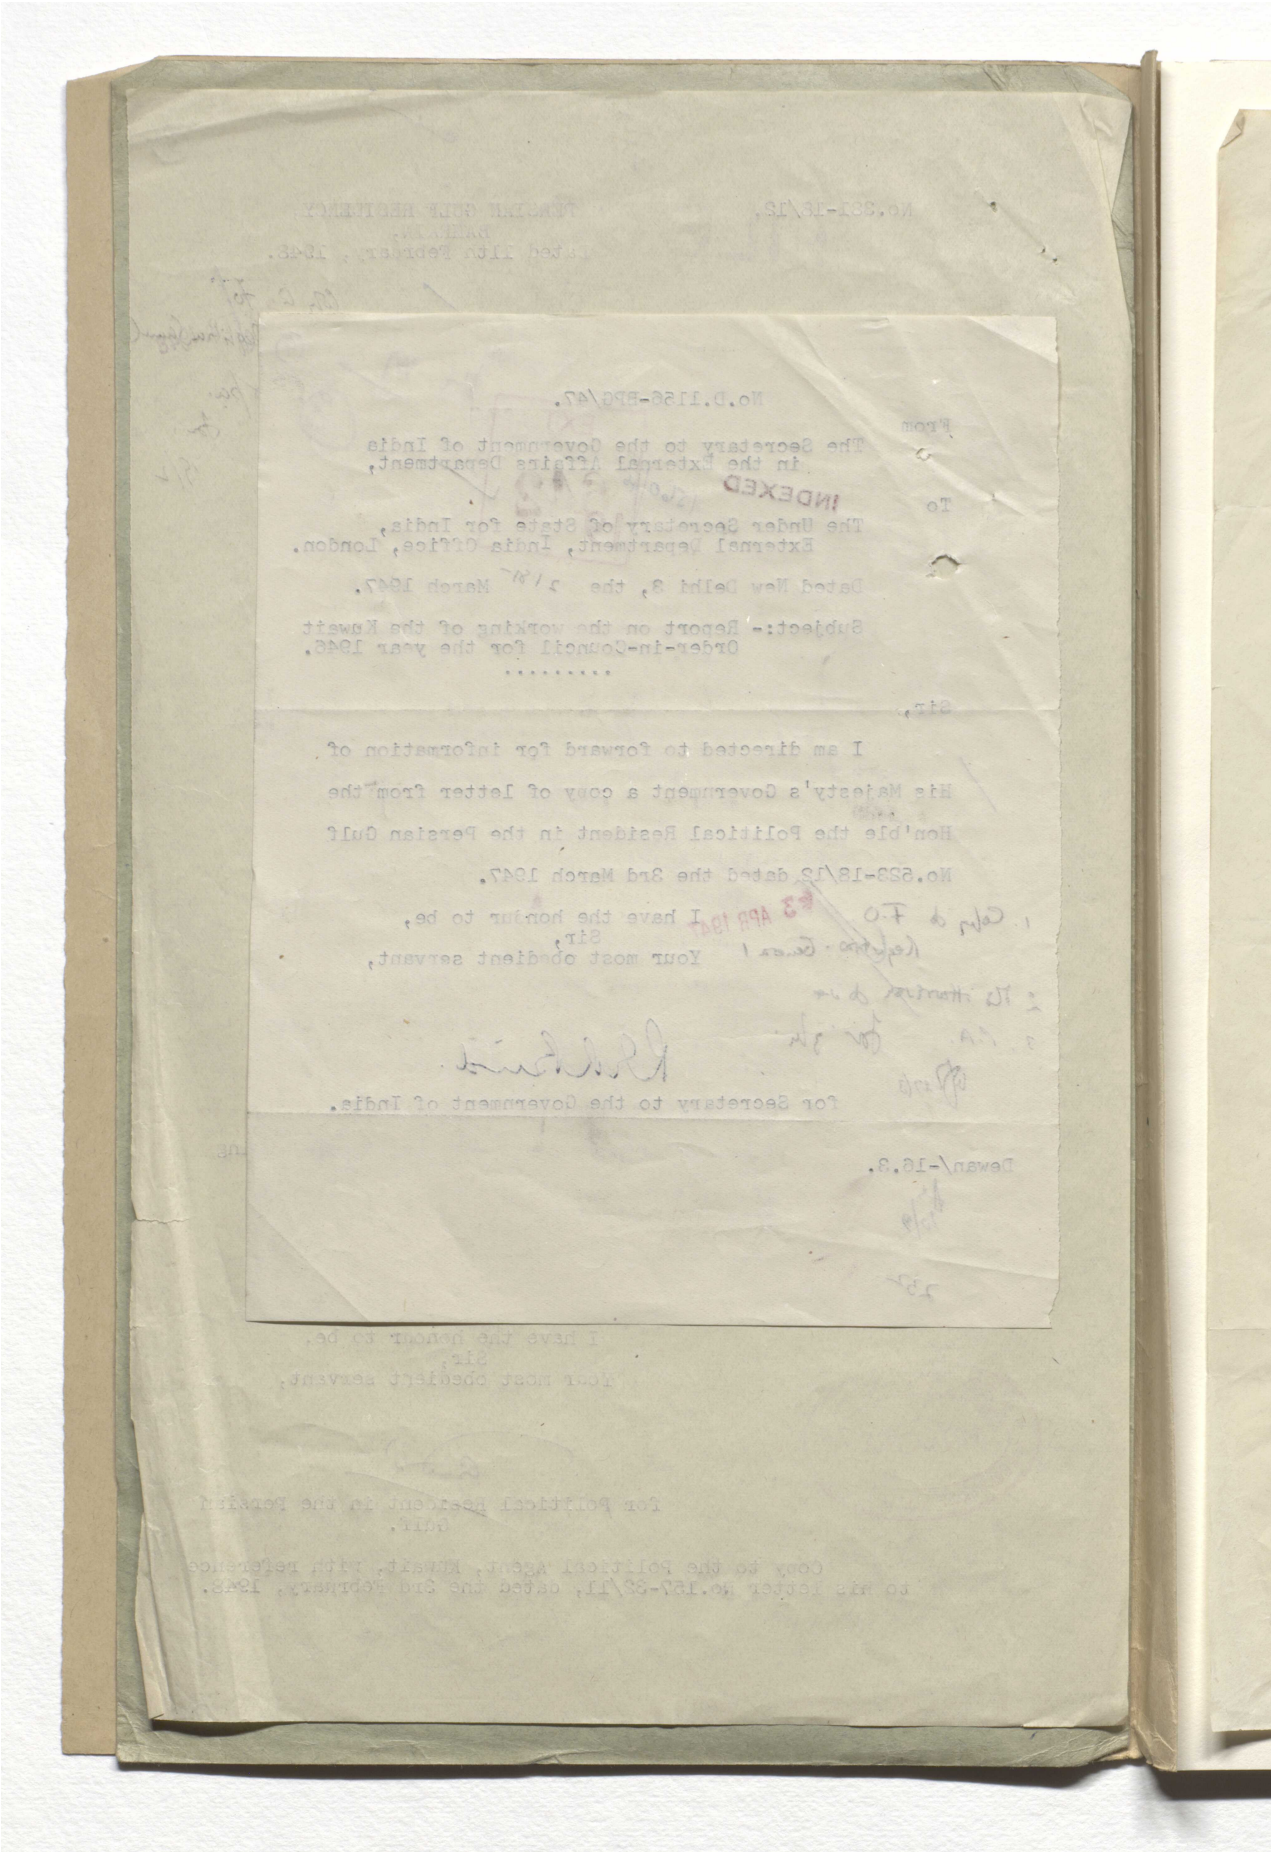 No.321-18/12.
PERSIAN GULF RESIDENCY,
BAHRAIN,
Dated 11th February, 1948.
No.D.1156-EPG/47.
From
The Secretary to the Government of India
in the External Affairs Department,
INDEXED
To
The Under Secretary of State for India,
External Department, India Office, London.
Dated New Delhi 3, the 21st March 1947.
Subject:- Report on the working of the Kuwait
Order-in-Council for the year 1946.
.........
Sir,
I am directed to forward for information of
His Majesty's Government a copy of letter from the
Hon'ble the Political Resident in the Persian Gulf
No.523-18/12 dated the 3rd March 1947.
3 APR 1947
I have the honour to be,
Sir,
Your most obedient servant,
1. Copy to F.O.
for Secretary to the Government of India.
Dewan/-16.3.
I have the honour to be,
Sir,
Your most obedient servant,
for Political Resident in the Persian
Gulf.
Copy to the Political Agent, Kuwait, with reference
to his letter No.157-32/11, dated the 3rd February, 1948.